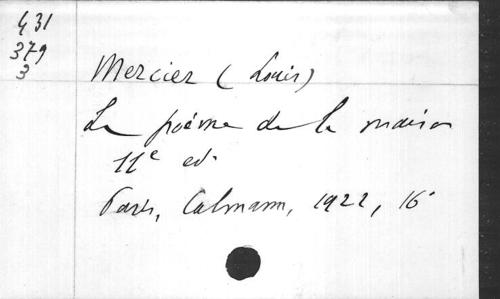 431
379
3
Mercier (Louis)
Le poème de la maison
11e ed.
Paris, Calmann, 1922, 16°